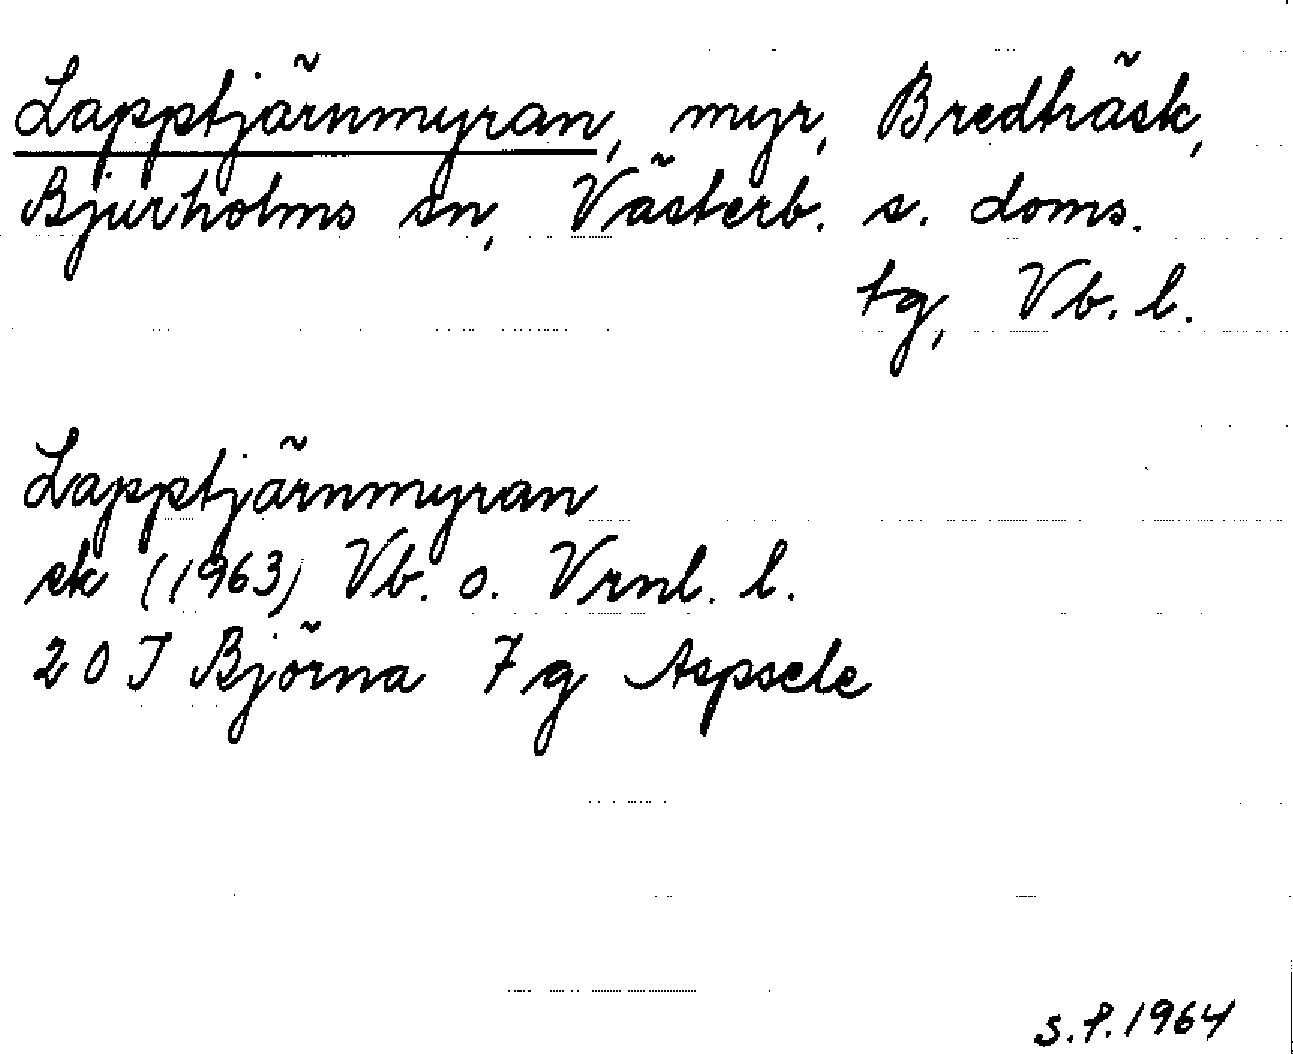 Lapptjärnmyran, myr, Bredträsk,
Bjurholms sn, Västerb. s. doms.
tg, Vb. l.
Lapptjärnmyran
ek (1963) Vb. o. Vrnl. l.
20 I Björna 7 g Aspsele
S.P. 1964